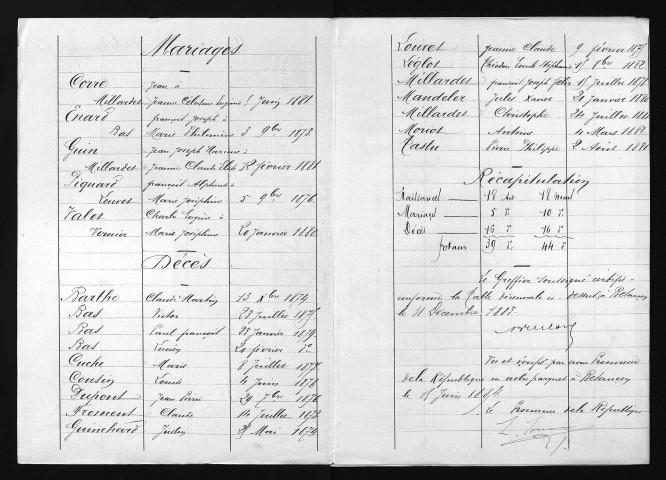 Mariages
Corre Jean à
Millardet Jeanne Célestine Eugénie 5 Juin 1881
Enard françois Joseph à
Bas Marie Philomène 3 9bre 1873
Guin Jean Joseph Mariens à
Millardet Jeanne Claude février 1881
Piguard françois Alphonse à
Louvet Marie Joséphine 5 9bre 1876
Valet Charles Eugène à
Vernier Marie Joséphine 20 Janvier 1880
Décès
Barthe Claude Martin 13 Xbre 1874
Bas Victor 23 Juillet 1875
Bas Paul françois 23 Janvier 1879
Bas Louise 20 février do
Cuche Marie 8 Juillet 1877
Cousin Louis 4 Juin 1878
Dupont Jean Pierre 29 7bre 1876
Froment Claude 14 Juillet 1873
Guinchard Judes Mai 1874
Louvet Jeanne Claude 9 février 1875
Léglot Théodore Louis Stéphane 15 8bre 1882
Millardet françois Joseph Félix 15 Juillet 1878
Mandeler Jules Xavier 21 Janvier 1880
Millardet Christophe 24 Juillet 1881
Moriot Antoine 4 Mars 1882
Tastu Pierre Philippe 2 Août 1881
Récapitulation
Naissances 18 Act 18 noms
Mariages 5 do 10 do
Décès 16 do 16 do
Totaux 39 do 44 do
Le Greffier soussigné certifie
conforme la Table décennale ci-dessus à Besançon
le 11 Décembre 1883.
Vu et vérifié par nous Procureur
de la République en notre parquet à Besançon
le 15 Juin 1884
Le Procureur de la République